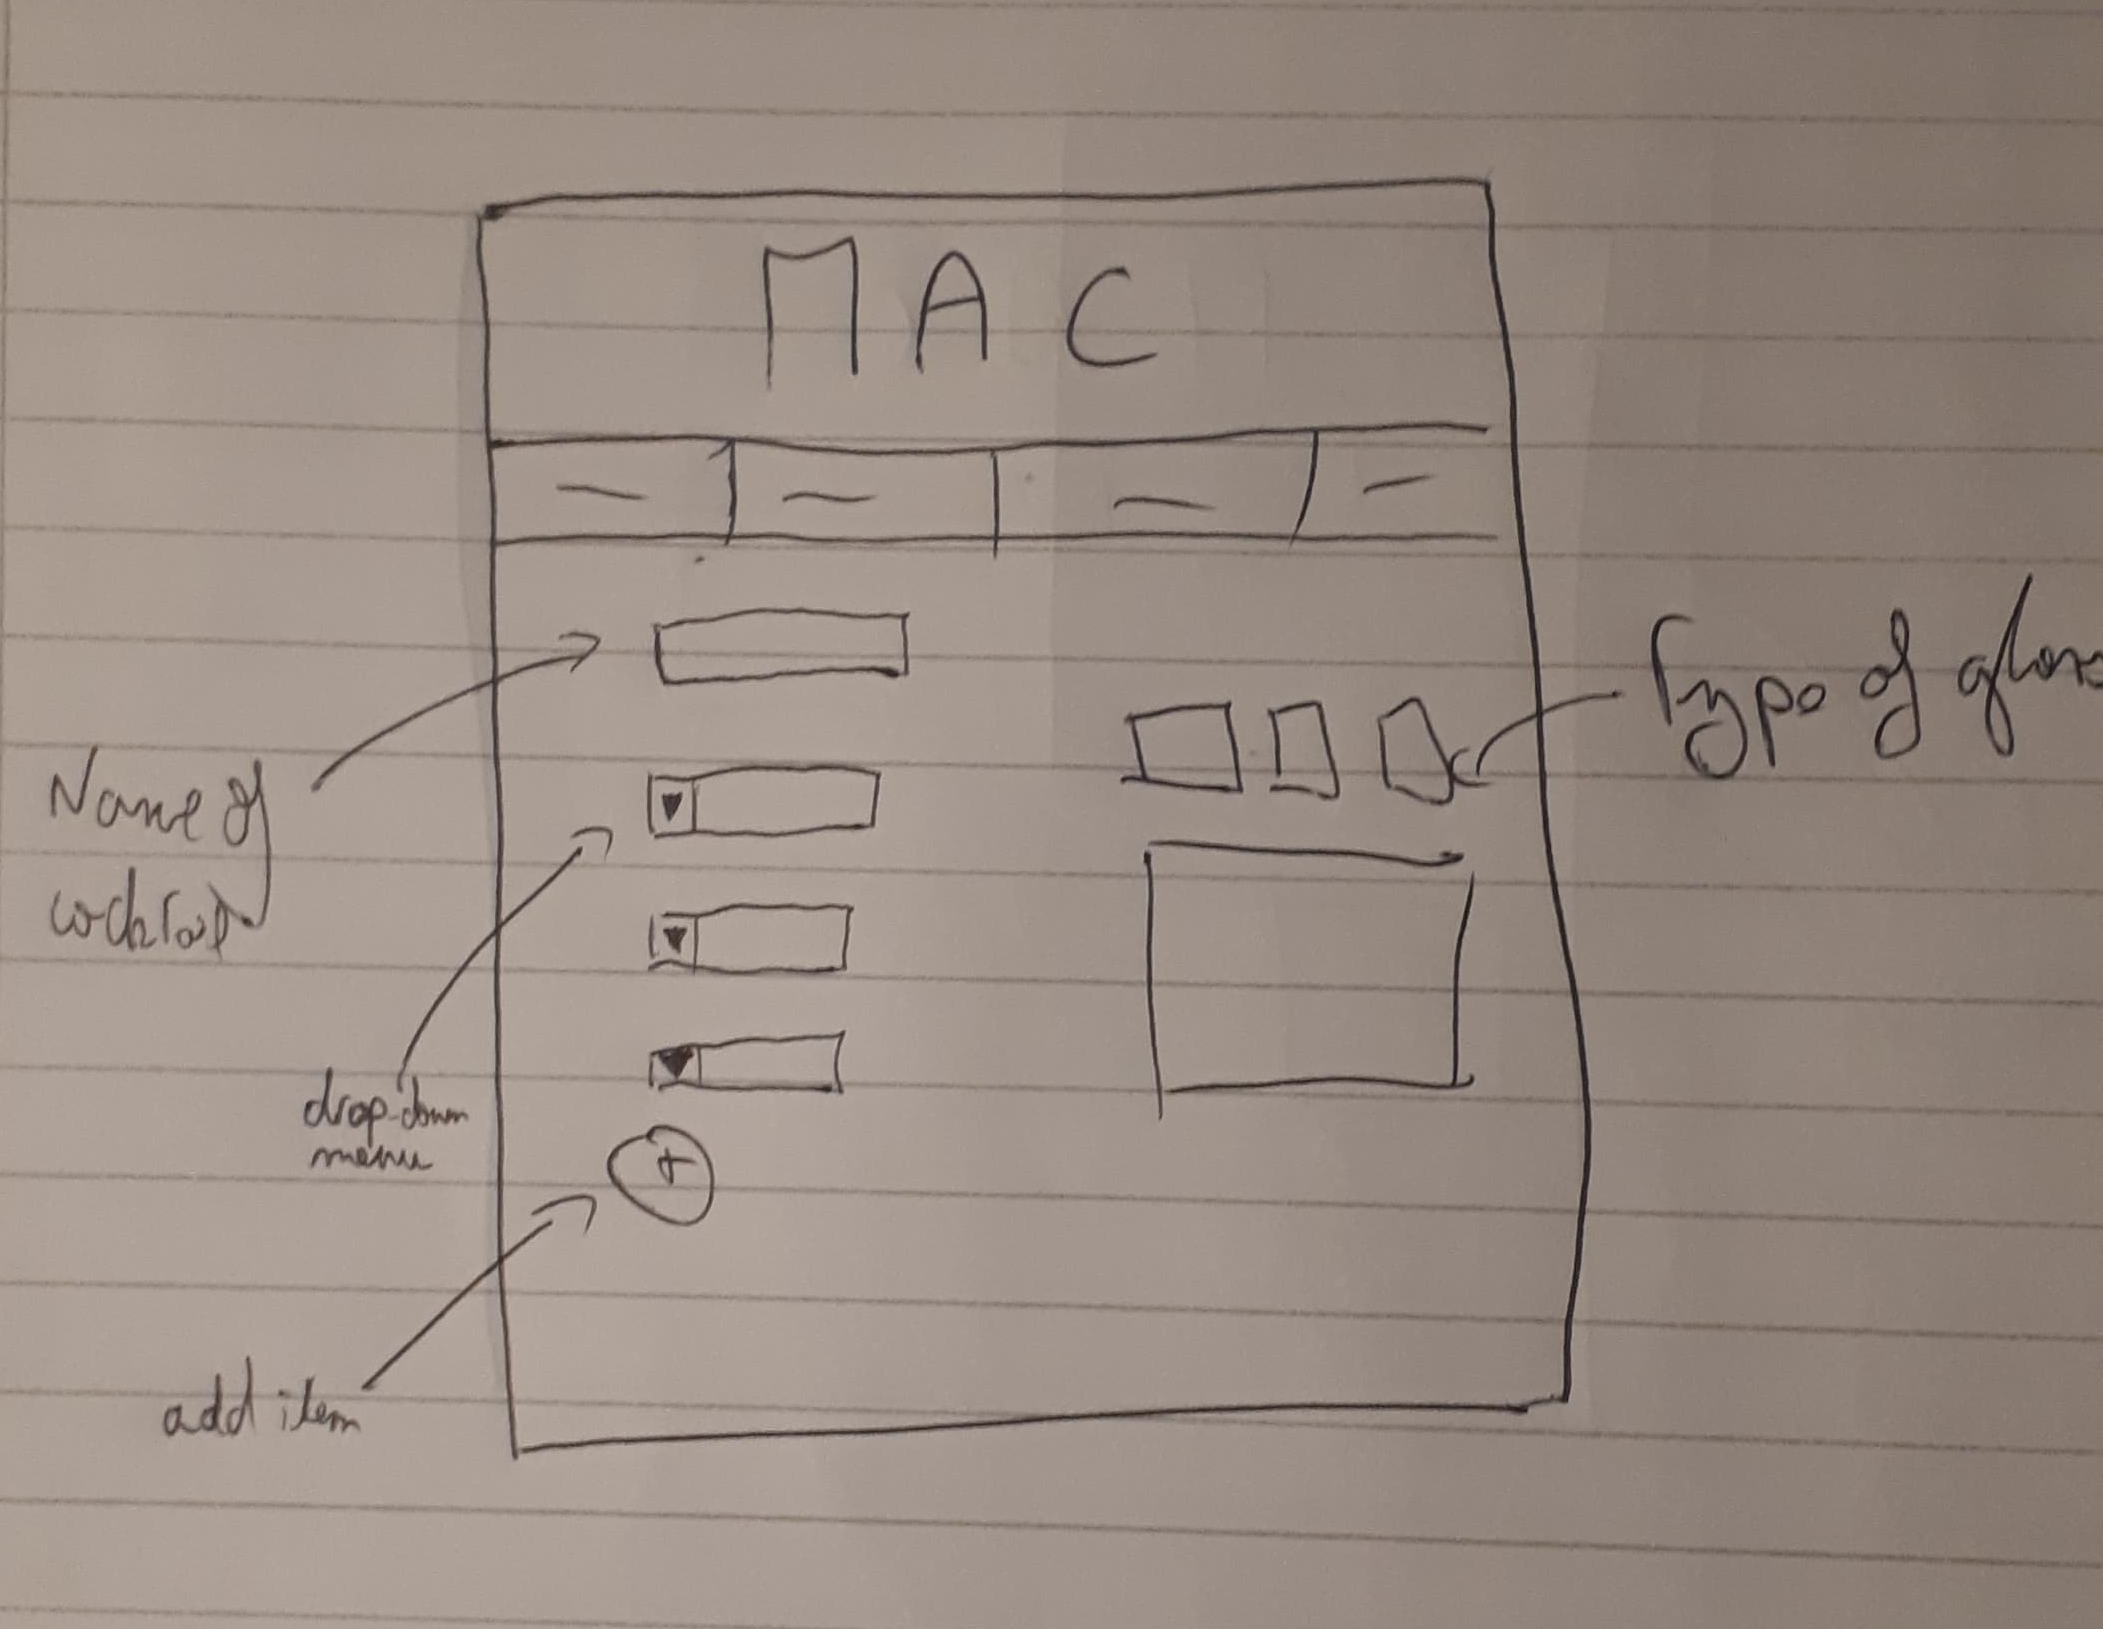 MAC
Name of
cocktail
Type of glass
drop-down
menu
+
add item